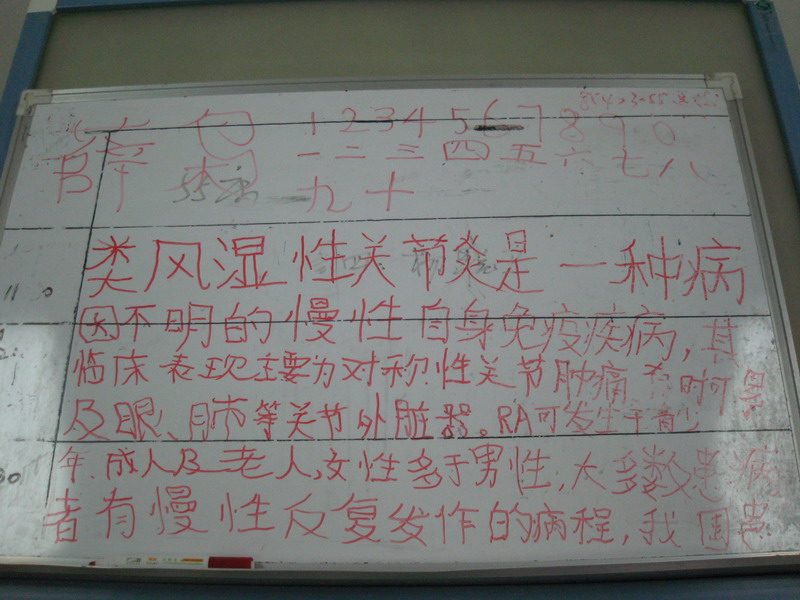 1 2 3 4 5 6 7 8 9 0
一 二 三 四 五 六 七 八
九 十
类风湿性关节炎是一种病
因不明的慢性自身免疫疾病,其
临床表现主要为对称性关节肿痛
及眼、肺等关节外脏器。RA可发生于青少
年、成人及老人,女性多于男性,大多数患病
者有慢性反复发作的病程,我国